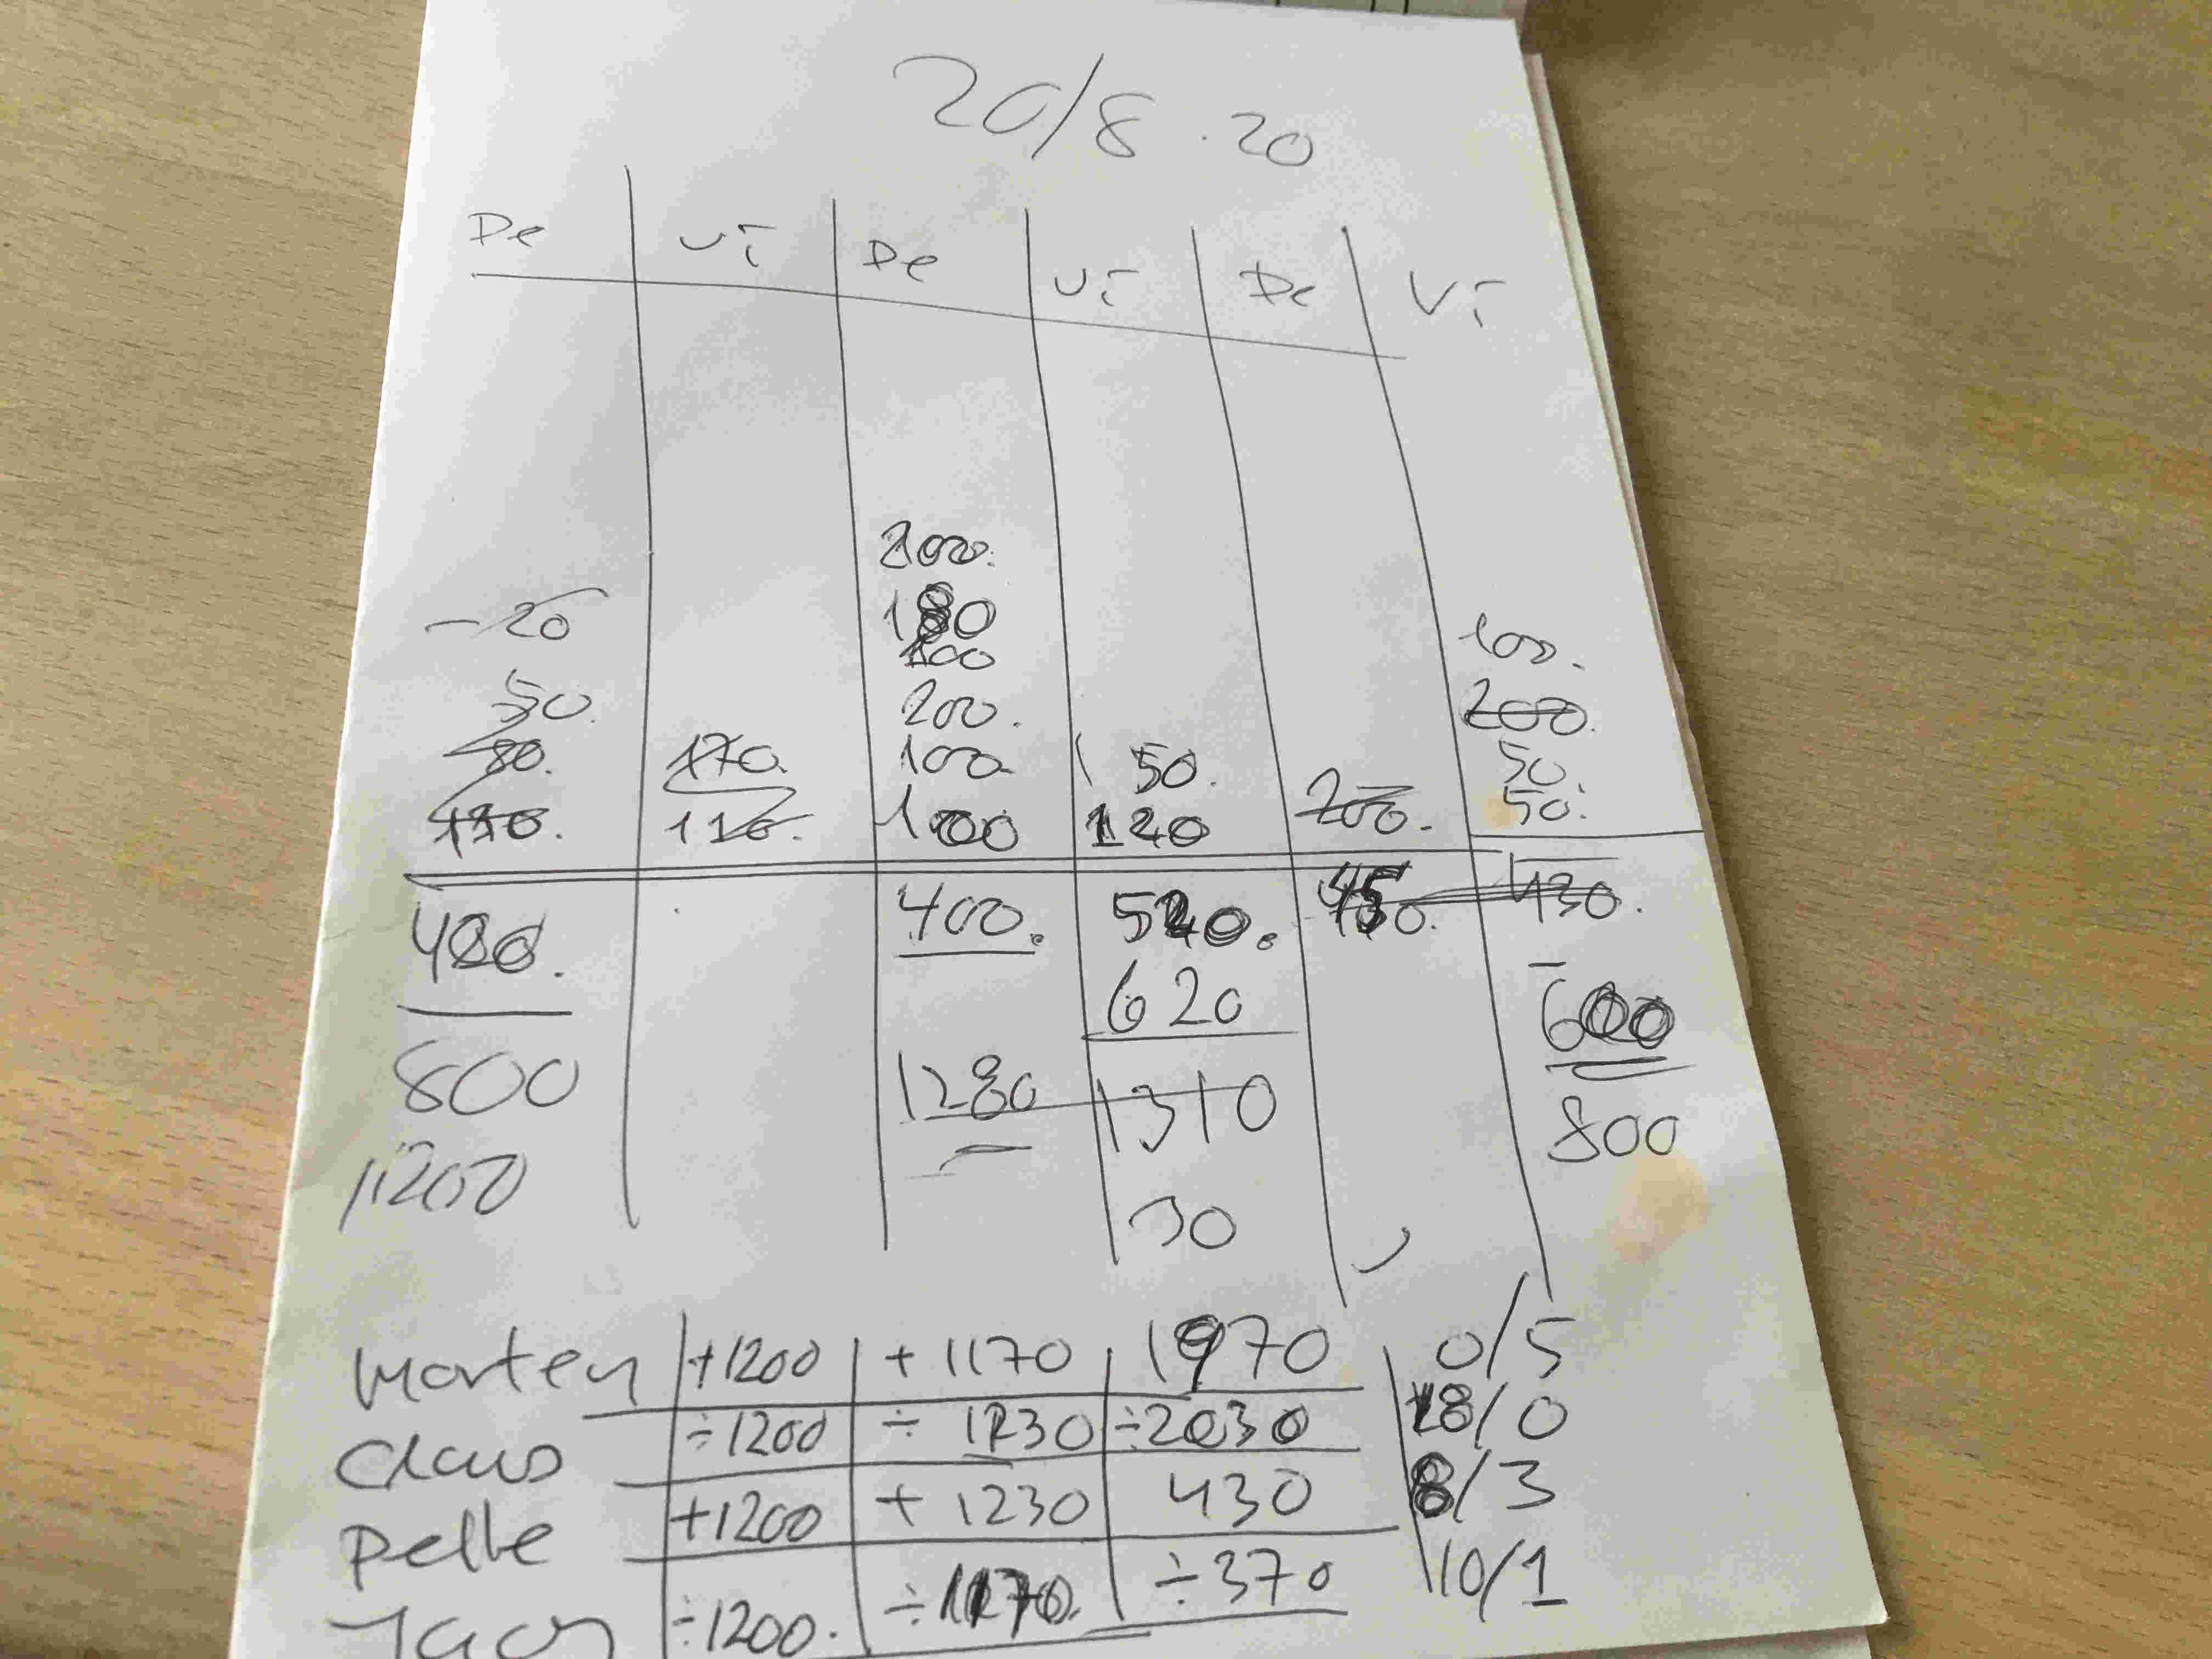 20/8.20
De Vi De Vi De Vi
200.
-20 180 100.
100
50. 200. 200.
80. 170. 100 50. 50
110. 110. 100 120 200. 50.
400. 520. 450. 430.
480.
620 600
800 1280 1310 800
1200 30
Morten +1200 +1170 1970 0/5
Claus ÷1200 ÷1230 ÷2030 18/0
Pelle +1200 +1230 430 8/3
÷1200. ÷1170. ÷370 10/1